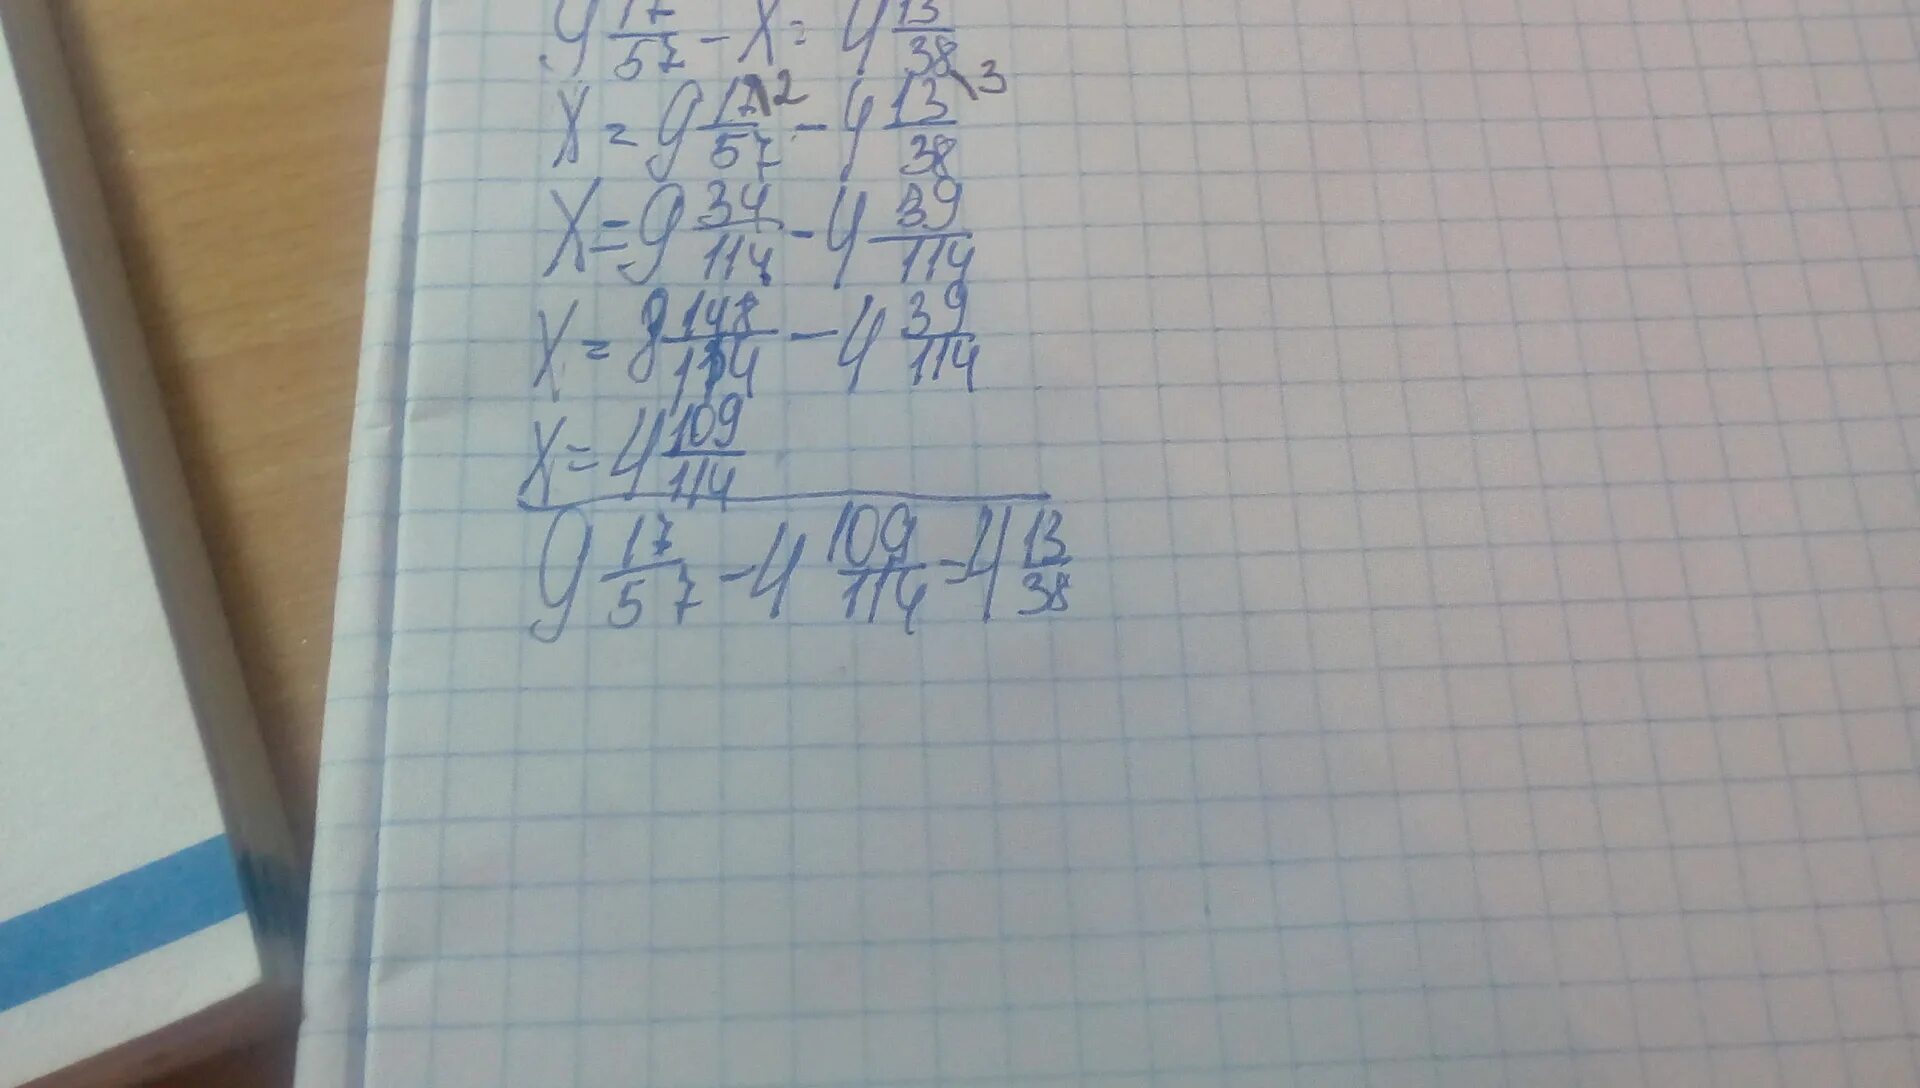 9 17/57 - X = 4 13/38
X = 9 17\2/57 - 4 13\3/38
X = 9 34/114 - 4 39/114
X = 8 148/114 - 4 39/114
X = 4 109/114
9 17/57 - 4 109/114 = 4 13/38